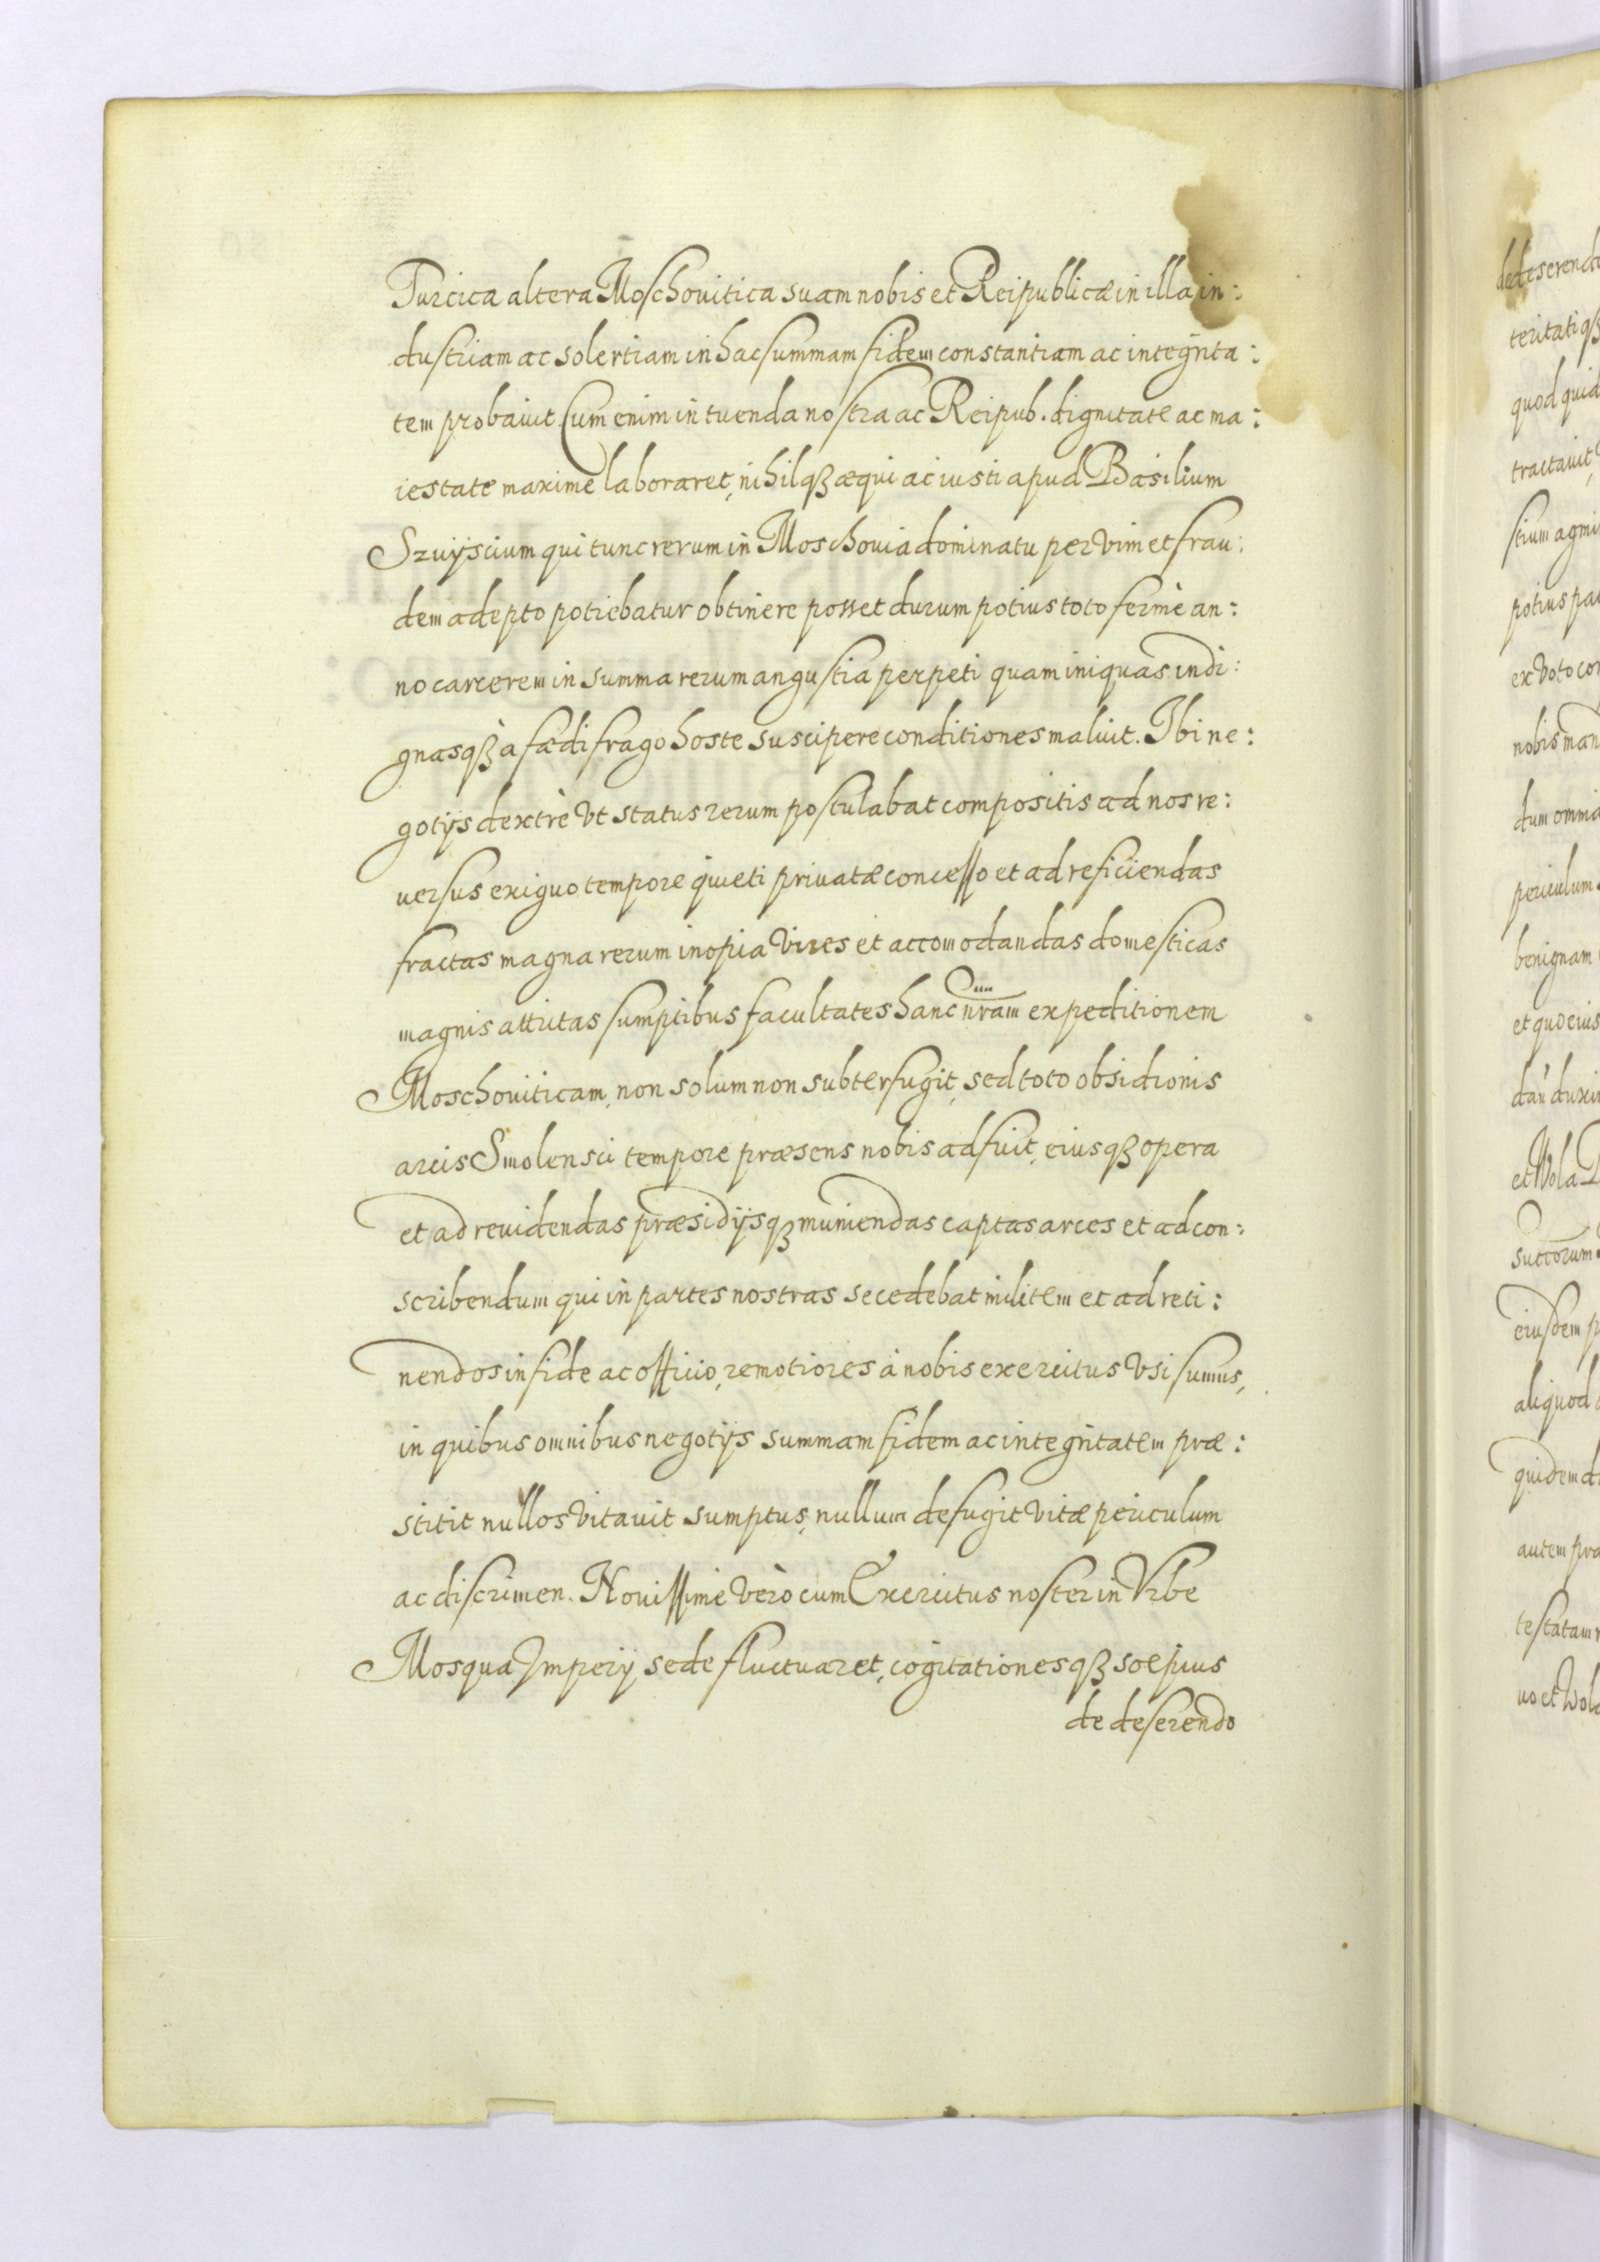 Turcica altera Moschouitica suam nobis et Reipublicæ in illa in:
dustriam ac solertiam in hac summam fidem constantiam ac integrita:
tem probauit. Cum enim in tuenda nostra ac Reipub. dignitate ac ma:
iestate maxime laboraret, nihilqȝ æqui ac iusti apud Basilium
Szuÿscium qui tunc rerum in Moschouia dominatu per vim et frau:
dem adepto potiebatur obtinere posset durum potius toto fermè an:
no carcerem in summa rerum angustia perpeti quam iniquas indi:
gnasqȝ à fædifrago hoste suscipere conditiones maluit. Ibi ne:
gotijs dextrè vt status rerum postulabat compositis ad nos re:
uersus exiguo tempore quieti priuatæ concesso et ad reficiendas
fractas magna rerum inopia vires et accomodandas domesticas
magnis attritas sumptibus facultates hanc nram expeditionem
Moschouiticam, non solum non subterfugit, sed toto obsidionis
arcis Smolensci tempore præsens nobis adfuit, eiusqȝ opera
et ad reuidendas præsidijsqȝ muniendas captas arces et ad con:
scribendum qui in partes nostras secedebat militem et ad reti:
nendos in fide ac officio, remotiores à nobis exercitus vsi sumus,
in quibus omnibus negotijs summam fidem ac integritatem præ:
stitit nullos vitauit sumptus, nullum defugit vitæ periculum
ac discrimen. Nouissimè verò cum Exercitus noster in Vrbe
Mosqua Imperij sede fluctuaret, cogitationesqȝ sœpius
de deserendo